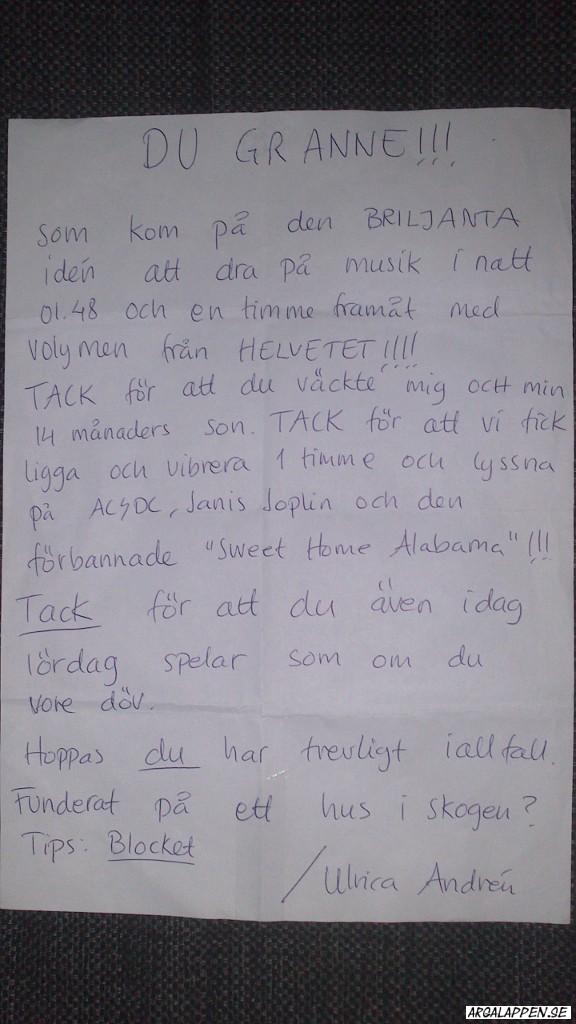 DU GRANNE!!!
som kom på den BRILJANTA
idén att dra på musik i natt
01.48 och en timme framåt med
volymen från HELVETET!!!!
TACK för att du väckte mig OCH min
14 månaders son. TACK för att vi fick
ligga och vibrera 1 timme och lyssna
på AC⚡DC, Janis Joplin och den
förbannade "Sweet Home Alabama"!!!
Tack för att du även idag
lördag spelar som om du
vore döv.
Hoppas du har trevligt iallfall.
Funderat på ett hus i skogen?
Tips: Blocket
/Ulrica Andrén
ARGALAPPEN.SE